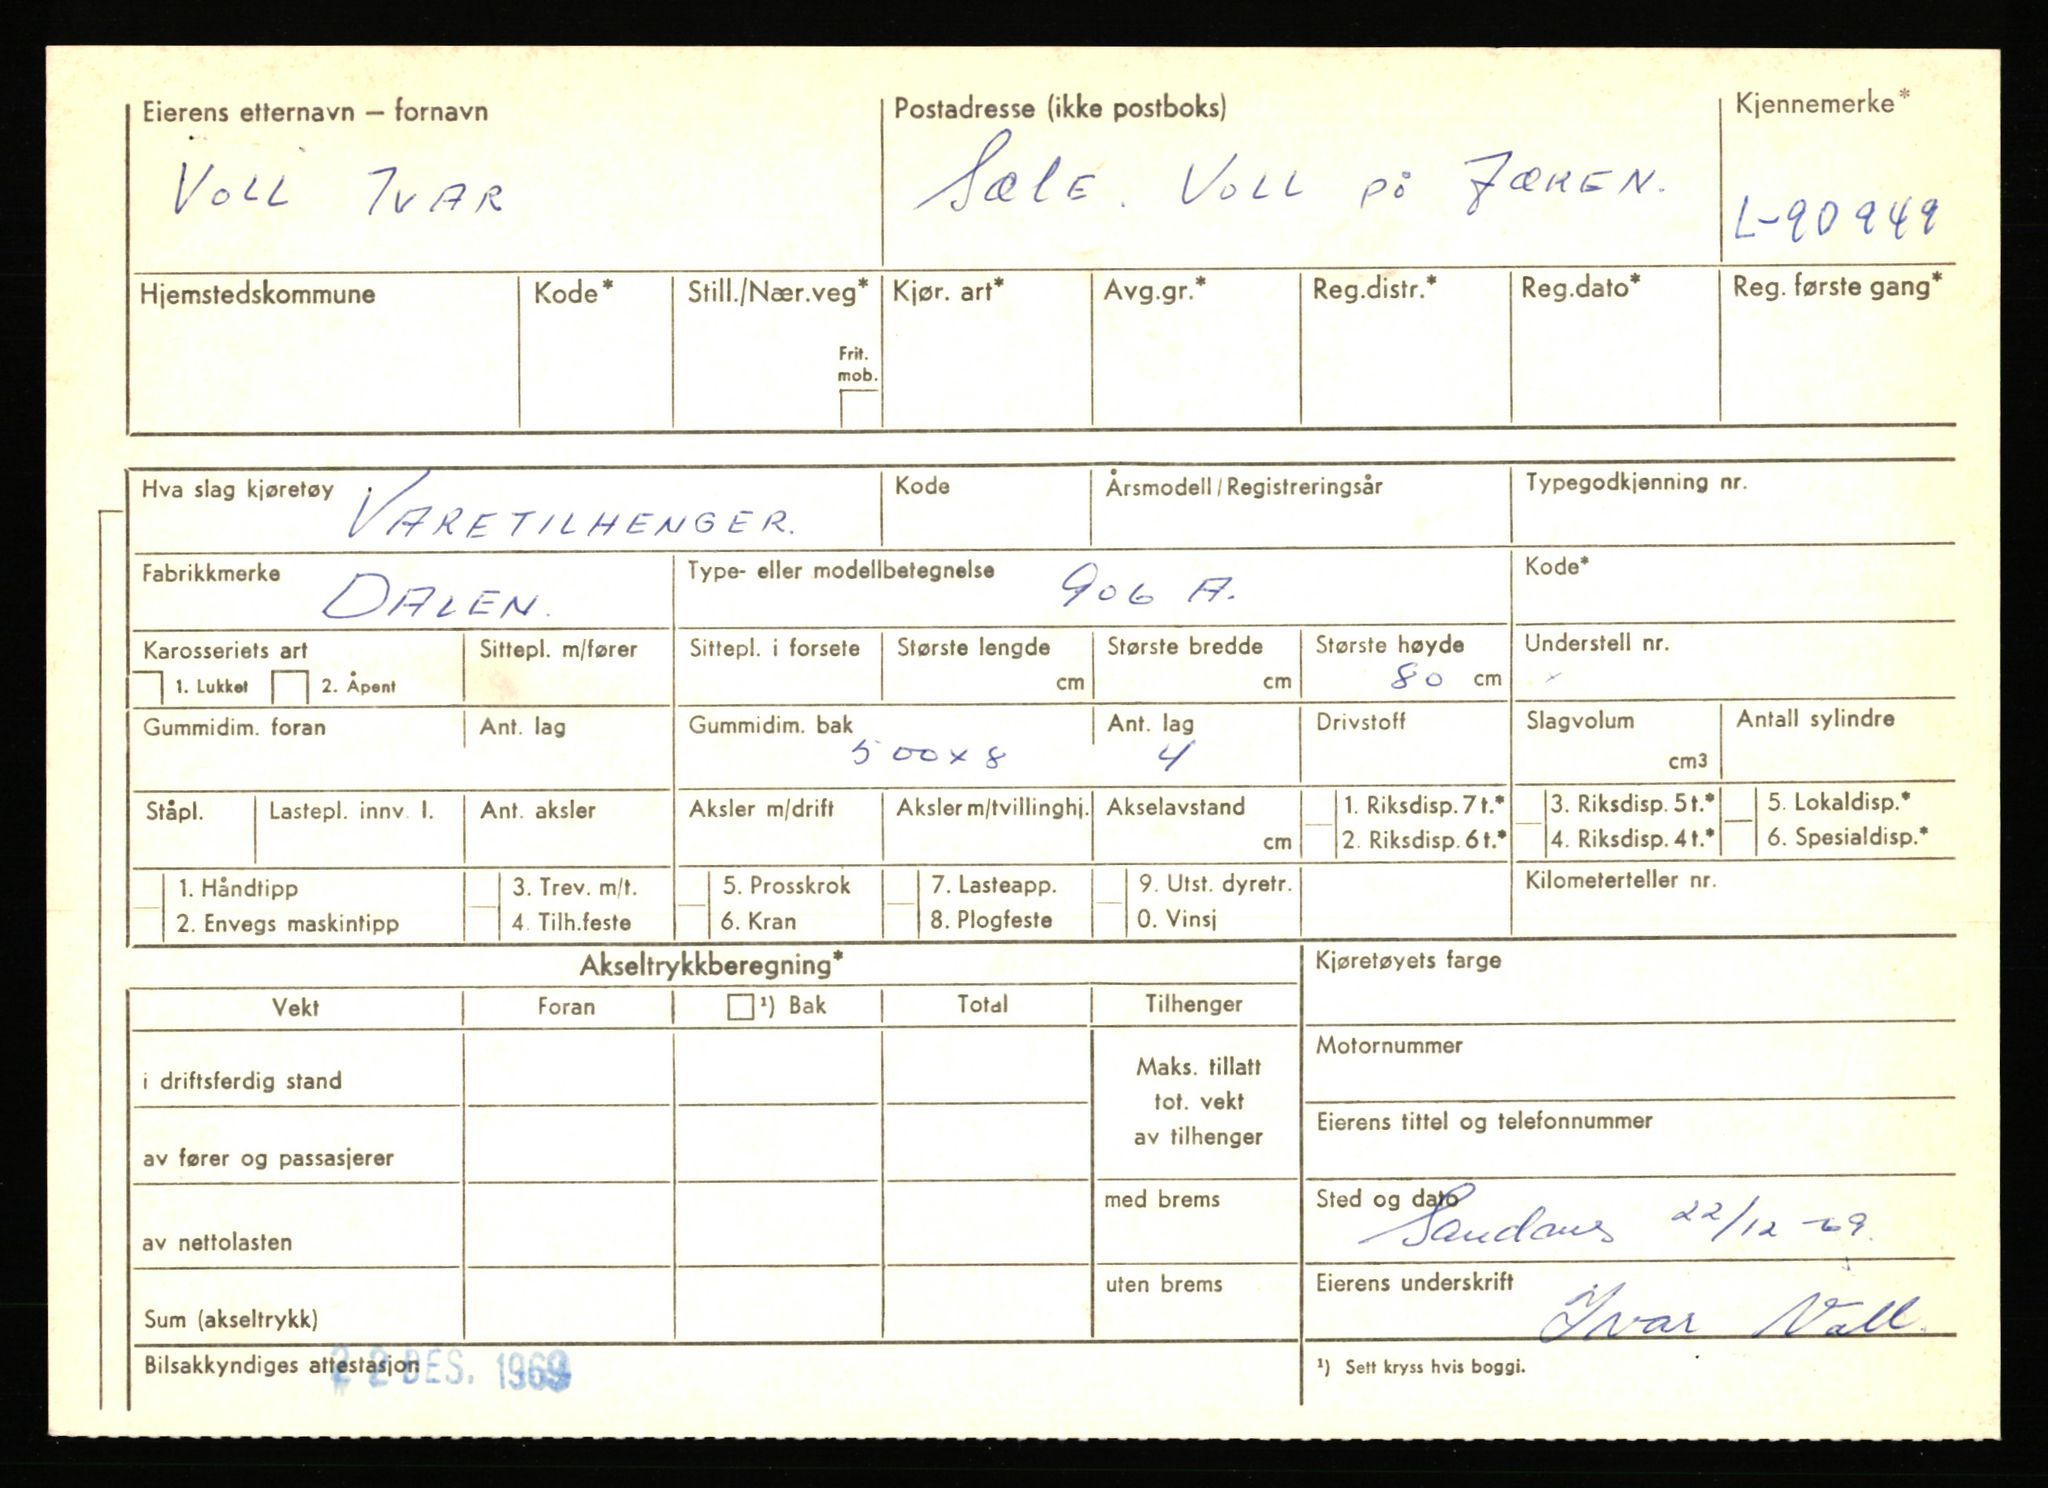 Eierens etternavn – fornavn Postadresse (ikke postboks) Kjennemerke*
VOLL IVAR SÆLE. VOLL på JÆREN. L-90949
Hjemstedskommune Kode* Still./Nær.veg* Kjør. art* Avg.gr.* Reg.distr.* Reg.dato* Reg. første gang*
Frit.
mob.
Hva slag kjøretøy VARETILHENGER. Kode Årsmodell/Registreringsår Typegodkjenning nr.
Fabrikkmerke DALEN. Type- eller modellbetegnelse 906 A. Kode*
Karosseriets art Sittepl. m/fører Sittepl. i forsete Største lengde Største bredde Største høyde Understell nr.
1. Lukket 2. Åpent cm cm 80 cm
Gummidim. foran Ant. lag Gummidim. bak Ant. lag Drivstoff Slagvolum Antall sylindre
500x8 4 cm3
Ståpl. Lastepl. innv. l. Ant. aksler Aksler m/drift Aksler m/tvillinghj. Akselavstand 1. Riksdisp. 7t.* 3. Riksdisp. 5t.* 5. Lokaldisp.*
cm 2. Riksdisp. 6t.* 4. Riksdisp. 4t.* 6. Spesialdisp.*
1. Håndtipp 3. Trev. m/t. 5. Prosskrok 7. Lasteapp. 9. Utst. dyretr. Kilometerteller nr.
2. Envegs maskintipp 4. Tilh.feste 6. Kran 8. Plogfeste 0. Vinsj
Akseltrykkberegning* Kjøretøyets farge
Vekt Foran ¹) Bak Total Tilhenger
Maks. tillatt
tot. vekt
av tilhenger
Motornummer
i driftsferdig stand
Eierens tittel og telefonnummer
av fører og passasjerer
med brems Sted og dato
Sandnes 22/12-69.
av nettolasten
uten brems Eierens underskrift
Ivar Voll.
Sum (akseltrykk)
Bilsakkyndiges attestasjon 22 DES. 1969 ¹) Sett kryss hvis boggi.